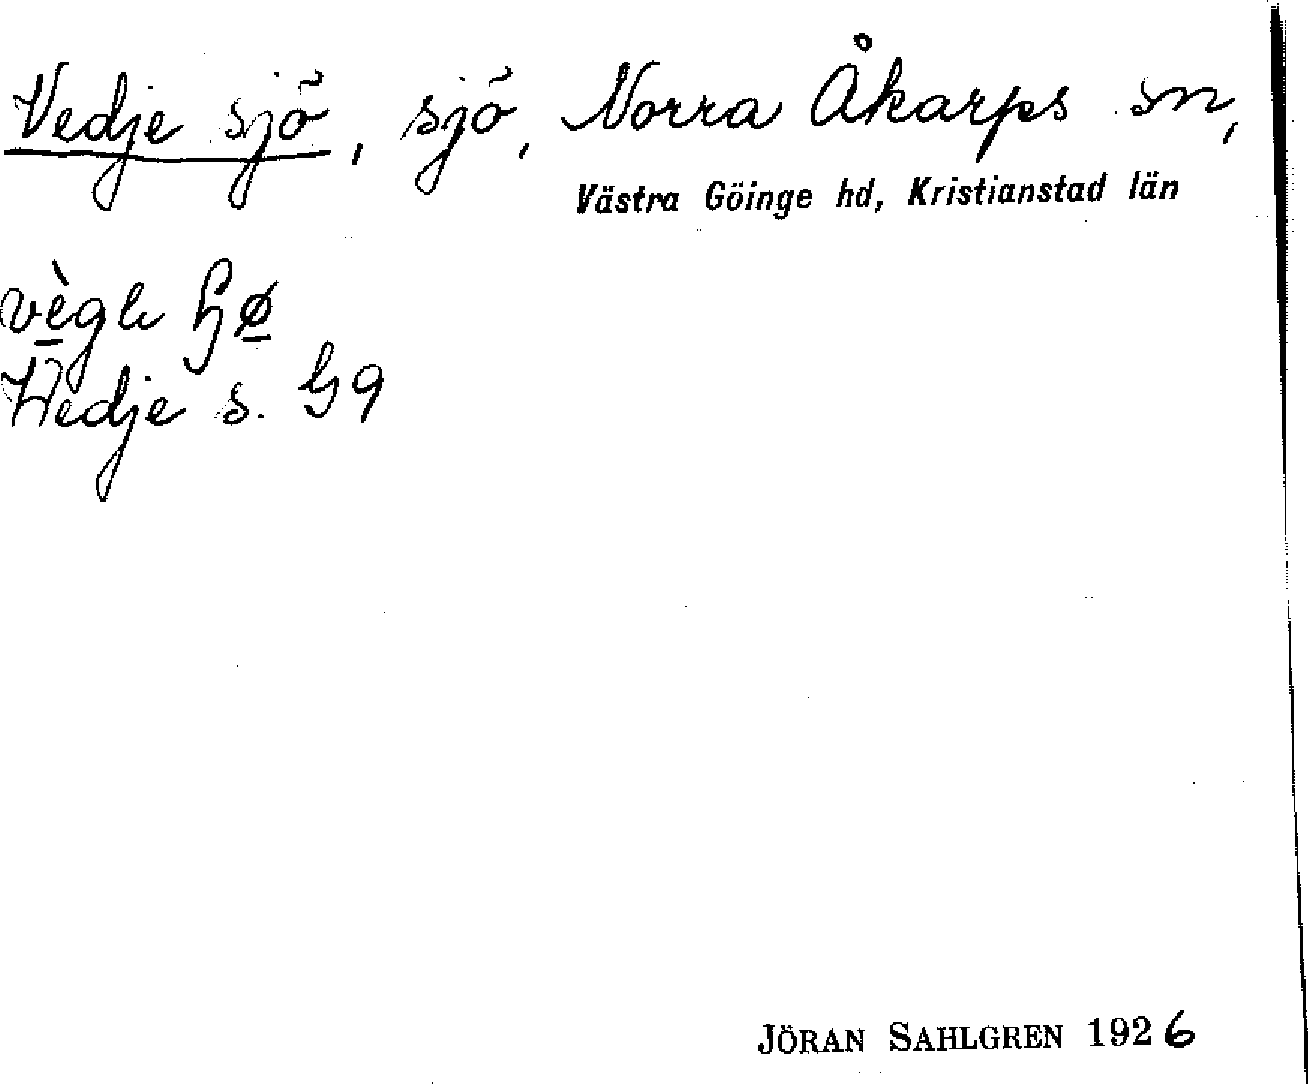 Vedje sjö, sjö, Norra Åkarps sn,
Västra Göinge hd, Kristianstad län
Wedje s.
JÖRAN SAHLGREN 1926